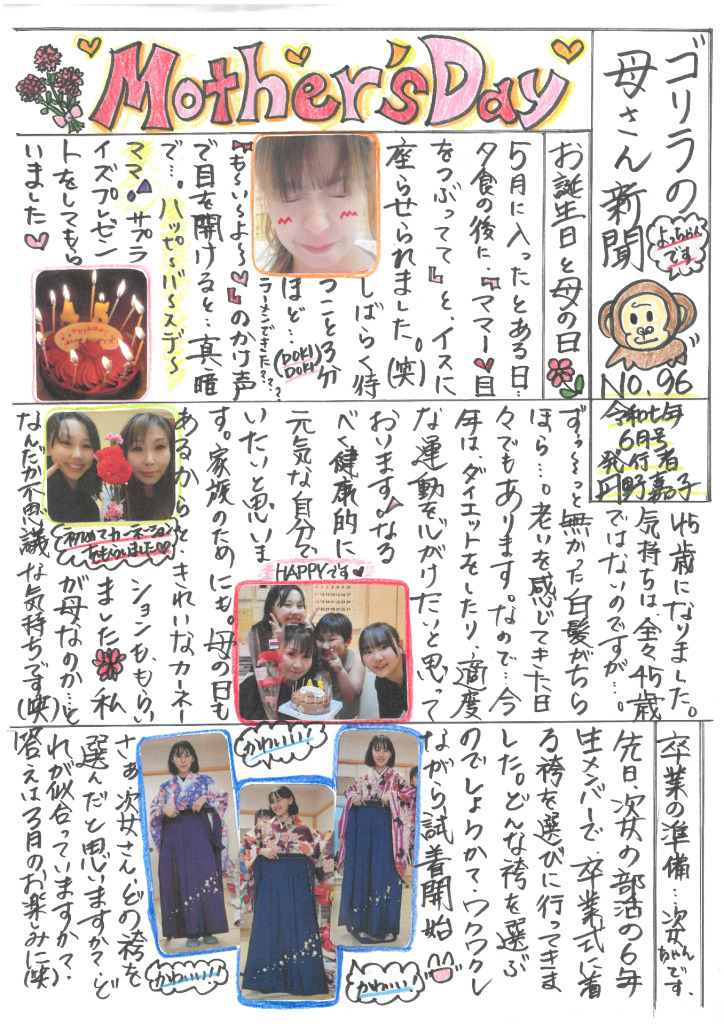 Mother'sDay
ゴリラの
母さん新聞
よっちゃん
です
NO.96
令和七年
6月号
発行者
円野嘉子
お誕生日と母の日
5月に入ったとある日…
夕食の後に、『ママー♥目
をつぶってて』と、イスに
座らせられました。(笑)
しばらく待
つこと3分
ほど…(DOKI DOKI)
ラーメンできた???
『も~い~よ~♥』のかけ声
で目を開けると…真っ暗
で…。ハッピ~バ~スデ~
ママ サプラ
イズプレゼン
トをしてもら
いました♡
45歳になりました。
気持ちは全々45歳
ではないのですが…。
ず~っと無かった白髪がちら
ほら…。老いを感じてきた日
々でもあります。なので…今
年は、ダイエットをしたり、適度
な運動を心がけたいと思って
おります。なる
べく健康的に
元気な自分で
いたいと思いま
す。家族のためにも。母の日も
あるからと…きれいなカーネー
ションも、もらい
ました 私
が母なのか…と
なんだか不思議な気持ちです(笑)
HAPPYです♥
初めてカーネーション
をもらいました♡
卒業の準備…次女ちゃんです、
先日、次女の部活の6年
生メンバーで、卒業式に着
る袴を選びに行ってきま
した。どんな袴を選ぶ
のでしょうか?ワクワクし
ながら試着開始
さぁ次女さん、どの袴を
選んだと思いますか?ど
れが似合っていますか?
答えは3月のお楽しみに(笑)
かわいい!
かわいい!!
かわいい!